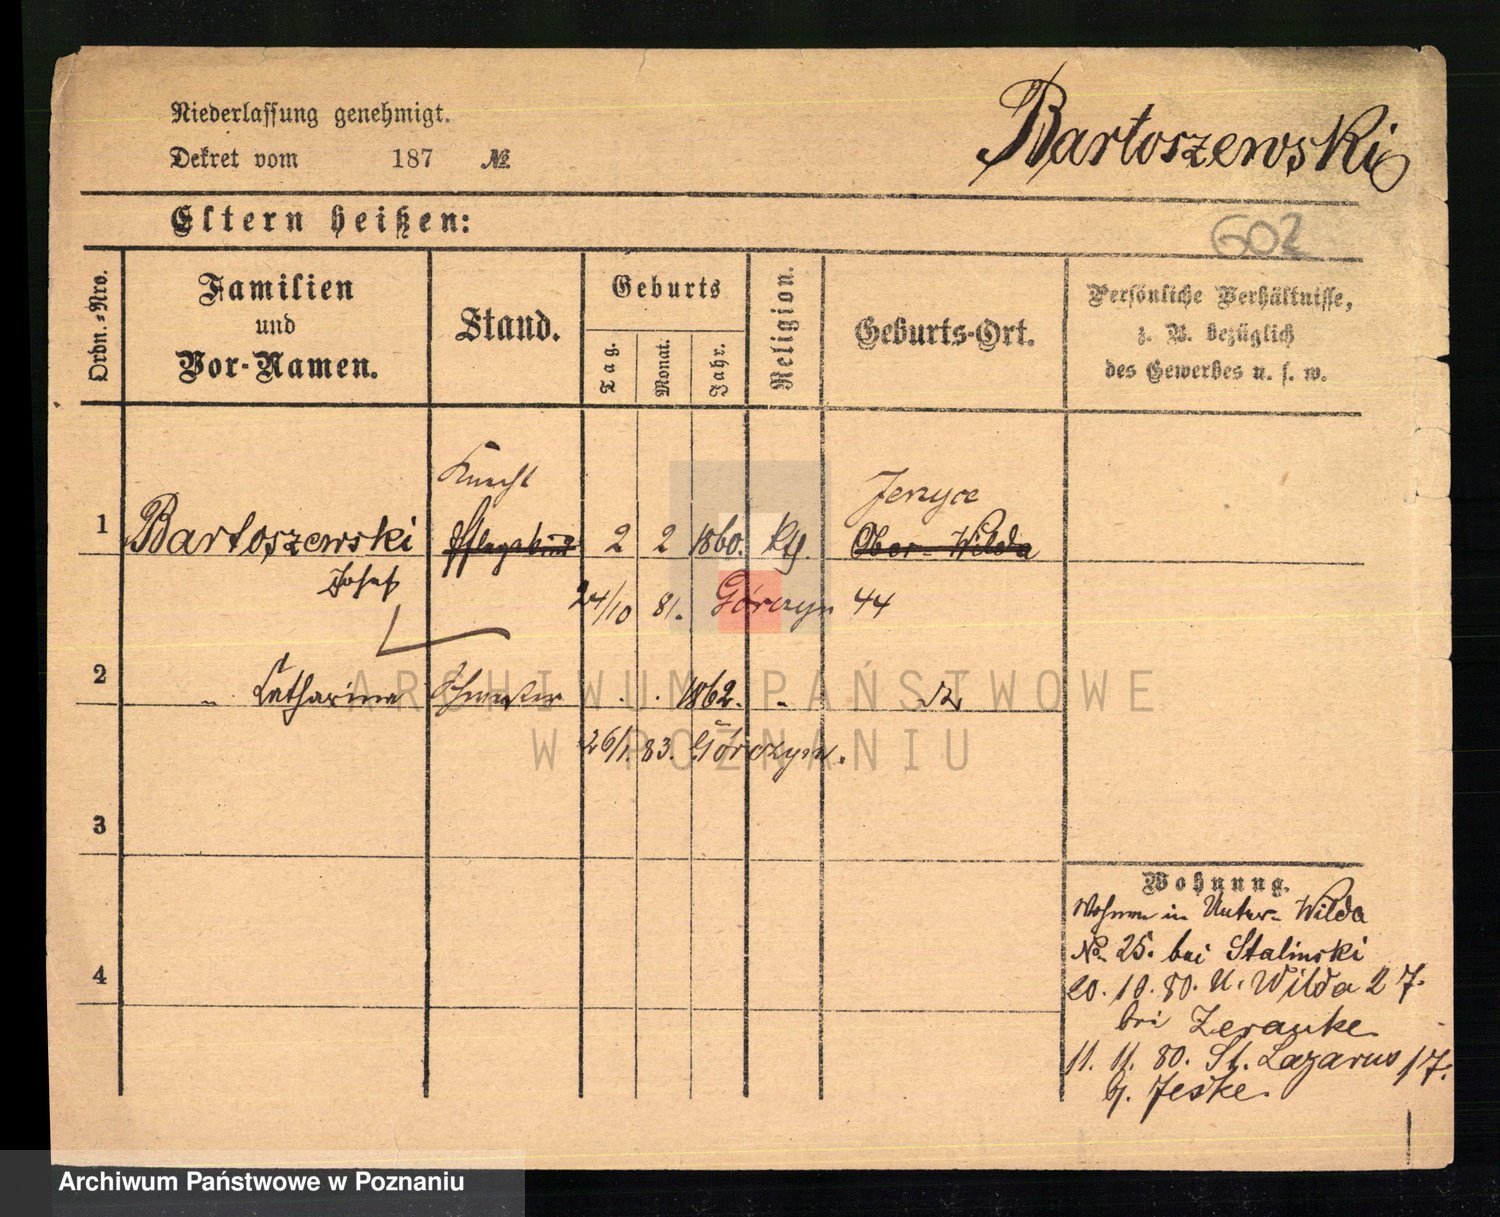 Niederlassung genehmigt.
Dekret vom 187 №
Bartoszewski
Eltern heißen:
602
Ordn.-Nro.
Familien
und
Vor-Namen.
Stand.
Geburts
Tag.
Monat.
Jahr.
Religion.
Geburts-Ort.
Persönliche Verhältnisse,
z. B. bezüglich
des Gewerbes u. s. w.
Knecht
Jerzyce
1 Bartoszewski Pflegekind 2 2 1860. kth. Ober-Wilda
Josef
24/10 81. Górczyn 44
2 " Catharina Schwester . . 1862. "
26/1. 83. Górczyn.
3
4
Wohnung.
Wohnen in Unter-Wilda
No 25. bei Stalinski
20. 10. 80. U. Wilda 27.
bei Zeranke
11. 11. 80. St. Lazarus 17.
b. Jeske.
ARCHIWUM PAŃSTWOWE
W POZNANIU
Archiwum Państwowe w Poznaniu